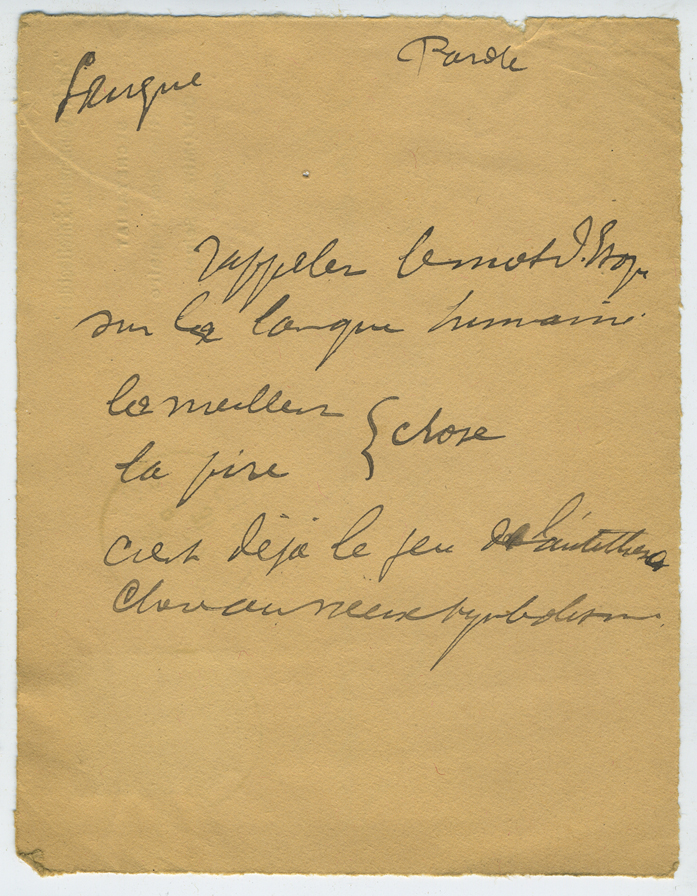 Langue Parole
rappeler le mot d'Esope
sur la langue humaine
la meilleure
la pire } chose
c'est déjà le jeu de l'antithèse
cher au vieux symbolisme